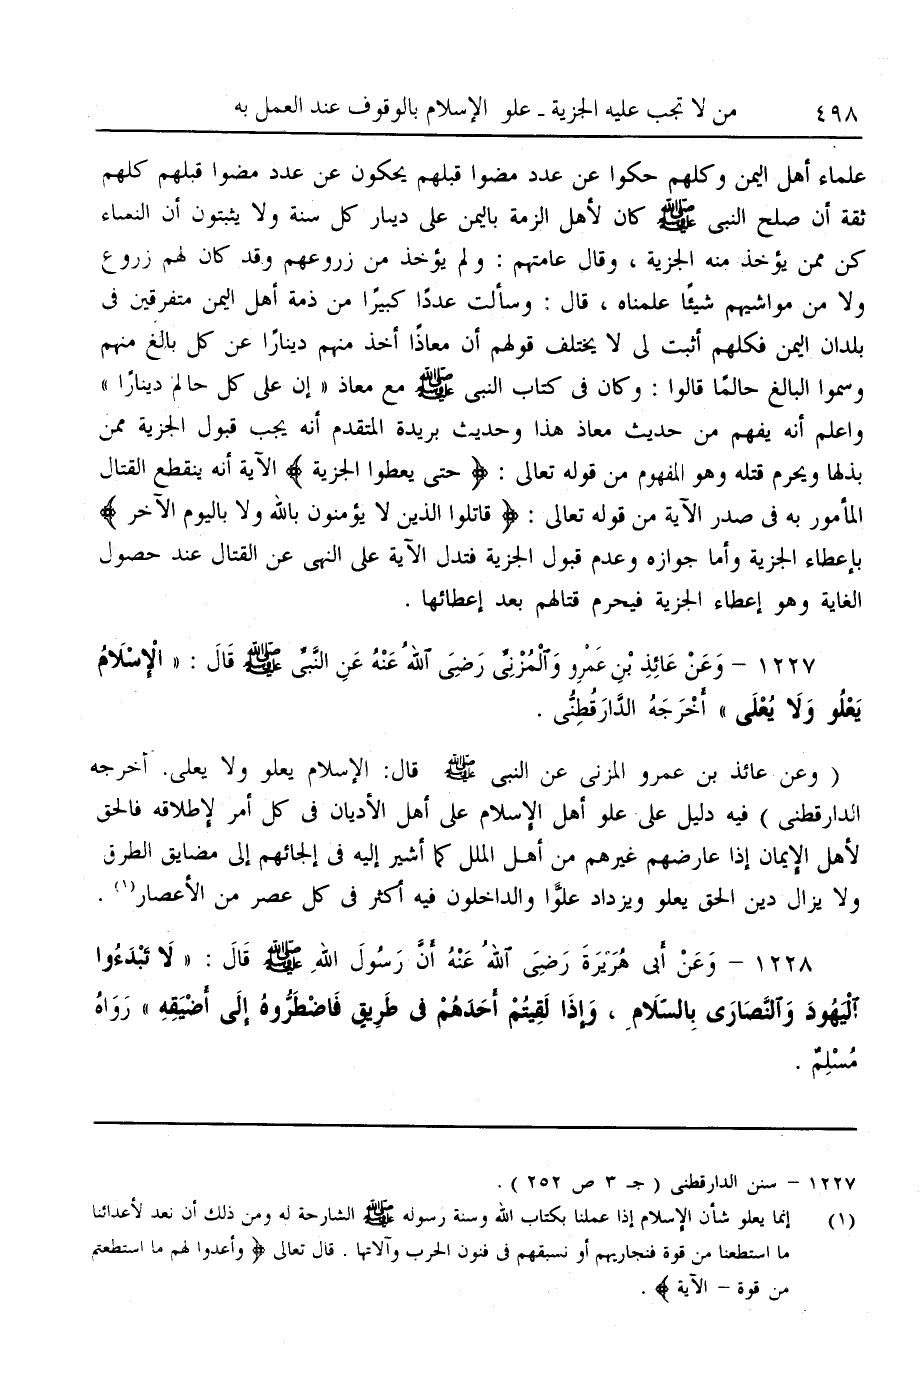 ٤٩٨ من لا تجب عليه الجزية ـ علو الإسلام بالوقوف عند العمل به
علماء أهل اليمن وكلهم حكوا عن عدد مضوا قبلهم يحكون عن عدد مضوا قبلهم كلهم
ثقة أن صلح النبى ﷺ كان لأهل الزمة باليمن على دينار كل سنة ولا يثبتون أن النساء
كن ممن يؤخذ منه الجزية ، وقال عامتهم : ولم يؤخذ من زروعهم وقد كان لهم زروع
ولا من مواشيهم شيئًا علمناه ، قال : وسألت عددًا كبيرًا من ذمة أهل اليمن متفرقين فى
بلدان اليمن فكلهم أثبت لى لا يختلف قولهم أن معاذًا أخذ منهم دينارًا عن كل بالغ منهم
وسموا البالغ حالمًا قالوا : وكان فى كتاب النبى ﷺ مع معاذ « إن على كل حالم دينارًا »
واعلم أنه يفهم من حديث معاذ هذا وحديث بريدة المتقدم أنه يجب قبول الجزية ممن
بذلها ويحرم قتله وهو المفهوم من قوله تعالى : ﴿ حتى يعطوا الجزية ﴾ الآية أنه ينقطع القتال
المأمور به فى صدر الآية من قوله تعالى : ﴿ قاتلوا الذين لا يؤمنون بالله ولا باليوم الآخر ﴾
بإعطاء الجزية وأما جوازه وعدم قبول الجزية فتدل الآية على النهى عن القتال عند حصول
الغاية وهو إعطاء الجزية فيحرم قتالهم بعد إعطائها .
١٢٢٧ – وَعَنْ عَائِذِ بْنِ عَمْرِو وَٱلْمُزَنِىِّ رَضِىَ ٱللهُ عَنْهُ عَنِ النَّبِىِّ ﷺ قَالَ : « الْإِسْلَامُ
يَعْلُو وَلَا يُعْلَى » أَخْرَجَهُ الدَّارَقُطْنِىُّ .
( وعن عائذ بن عمرو المزنى عن النبى ﷺ قال: الإسلام يعلو ولا يعلى. أخرجه
الدارقطنى ) فيه دليل على علو أهل الإسلام على أهل الأديان فى كل أمر لإطلاقه فالحق
لأهل الإيمان إذا عارضهم غيرهم من أهل الملل كما أشير إليه فى إلجائهم إلى مضايق الطرق
ولا يزال دين الحق يعلو ويزداد علوًّا والداخلون فيه أكثر فى كل عصر من الأعصار(١) .
١٢٢٨ – وَعَنْ أَبى هُرَيْرَةَ رَضِىَ ٱللهُ عَنْهُ أَنَّ رَسُولَ اللهِ ﷺ قَالَ : « لَا تَبْدَءُوا
ٱلْيَهُودَ وَٱلنَّصَارَى بِالسَّلَامِ ، وَإِذَا لَقِيتُمْ أَحَدَهُمْ فى طَرِيقٍ فَاضْطَرُّوهُ إِلَى أَضْيَقِهِ » رَوَاهُ
مُسْلِمٌ .
١٢٢٧ – سنن الدارقطنى ( جـ ٣ ص ٢٥٢ ) .
(١) إنما يعلو شأن الإسلام إذا عملنا بكتاب الله وسنة رسوله ﷺ الشارحة له ومن ذلك أن نعد لأعدائنا
ما استطعنا من قوة فنجاريهم أو نسبقهم فى فنون الحرب وآلاتها . قال تعالى ﴿ وأعدوا لهم ما استطعتم
من قوة – الآية ﴾ .